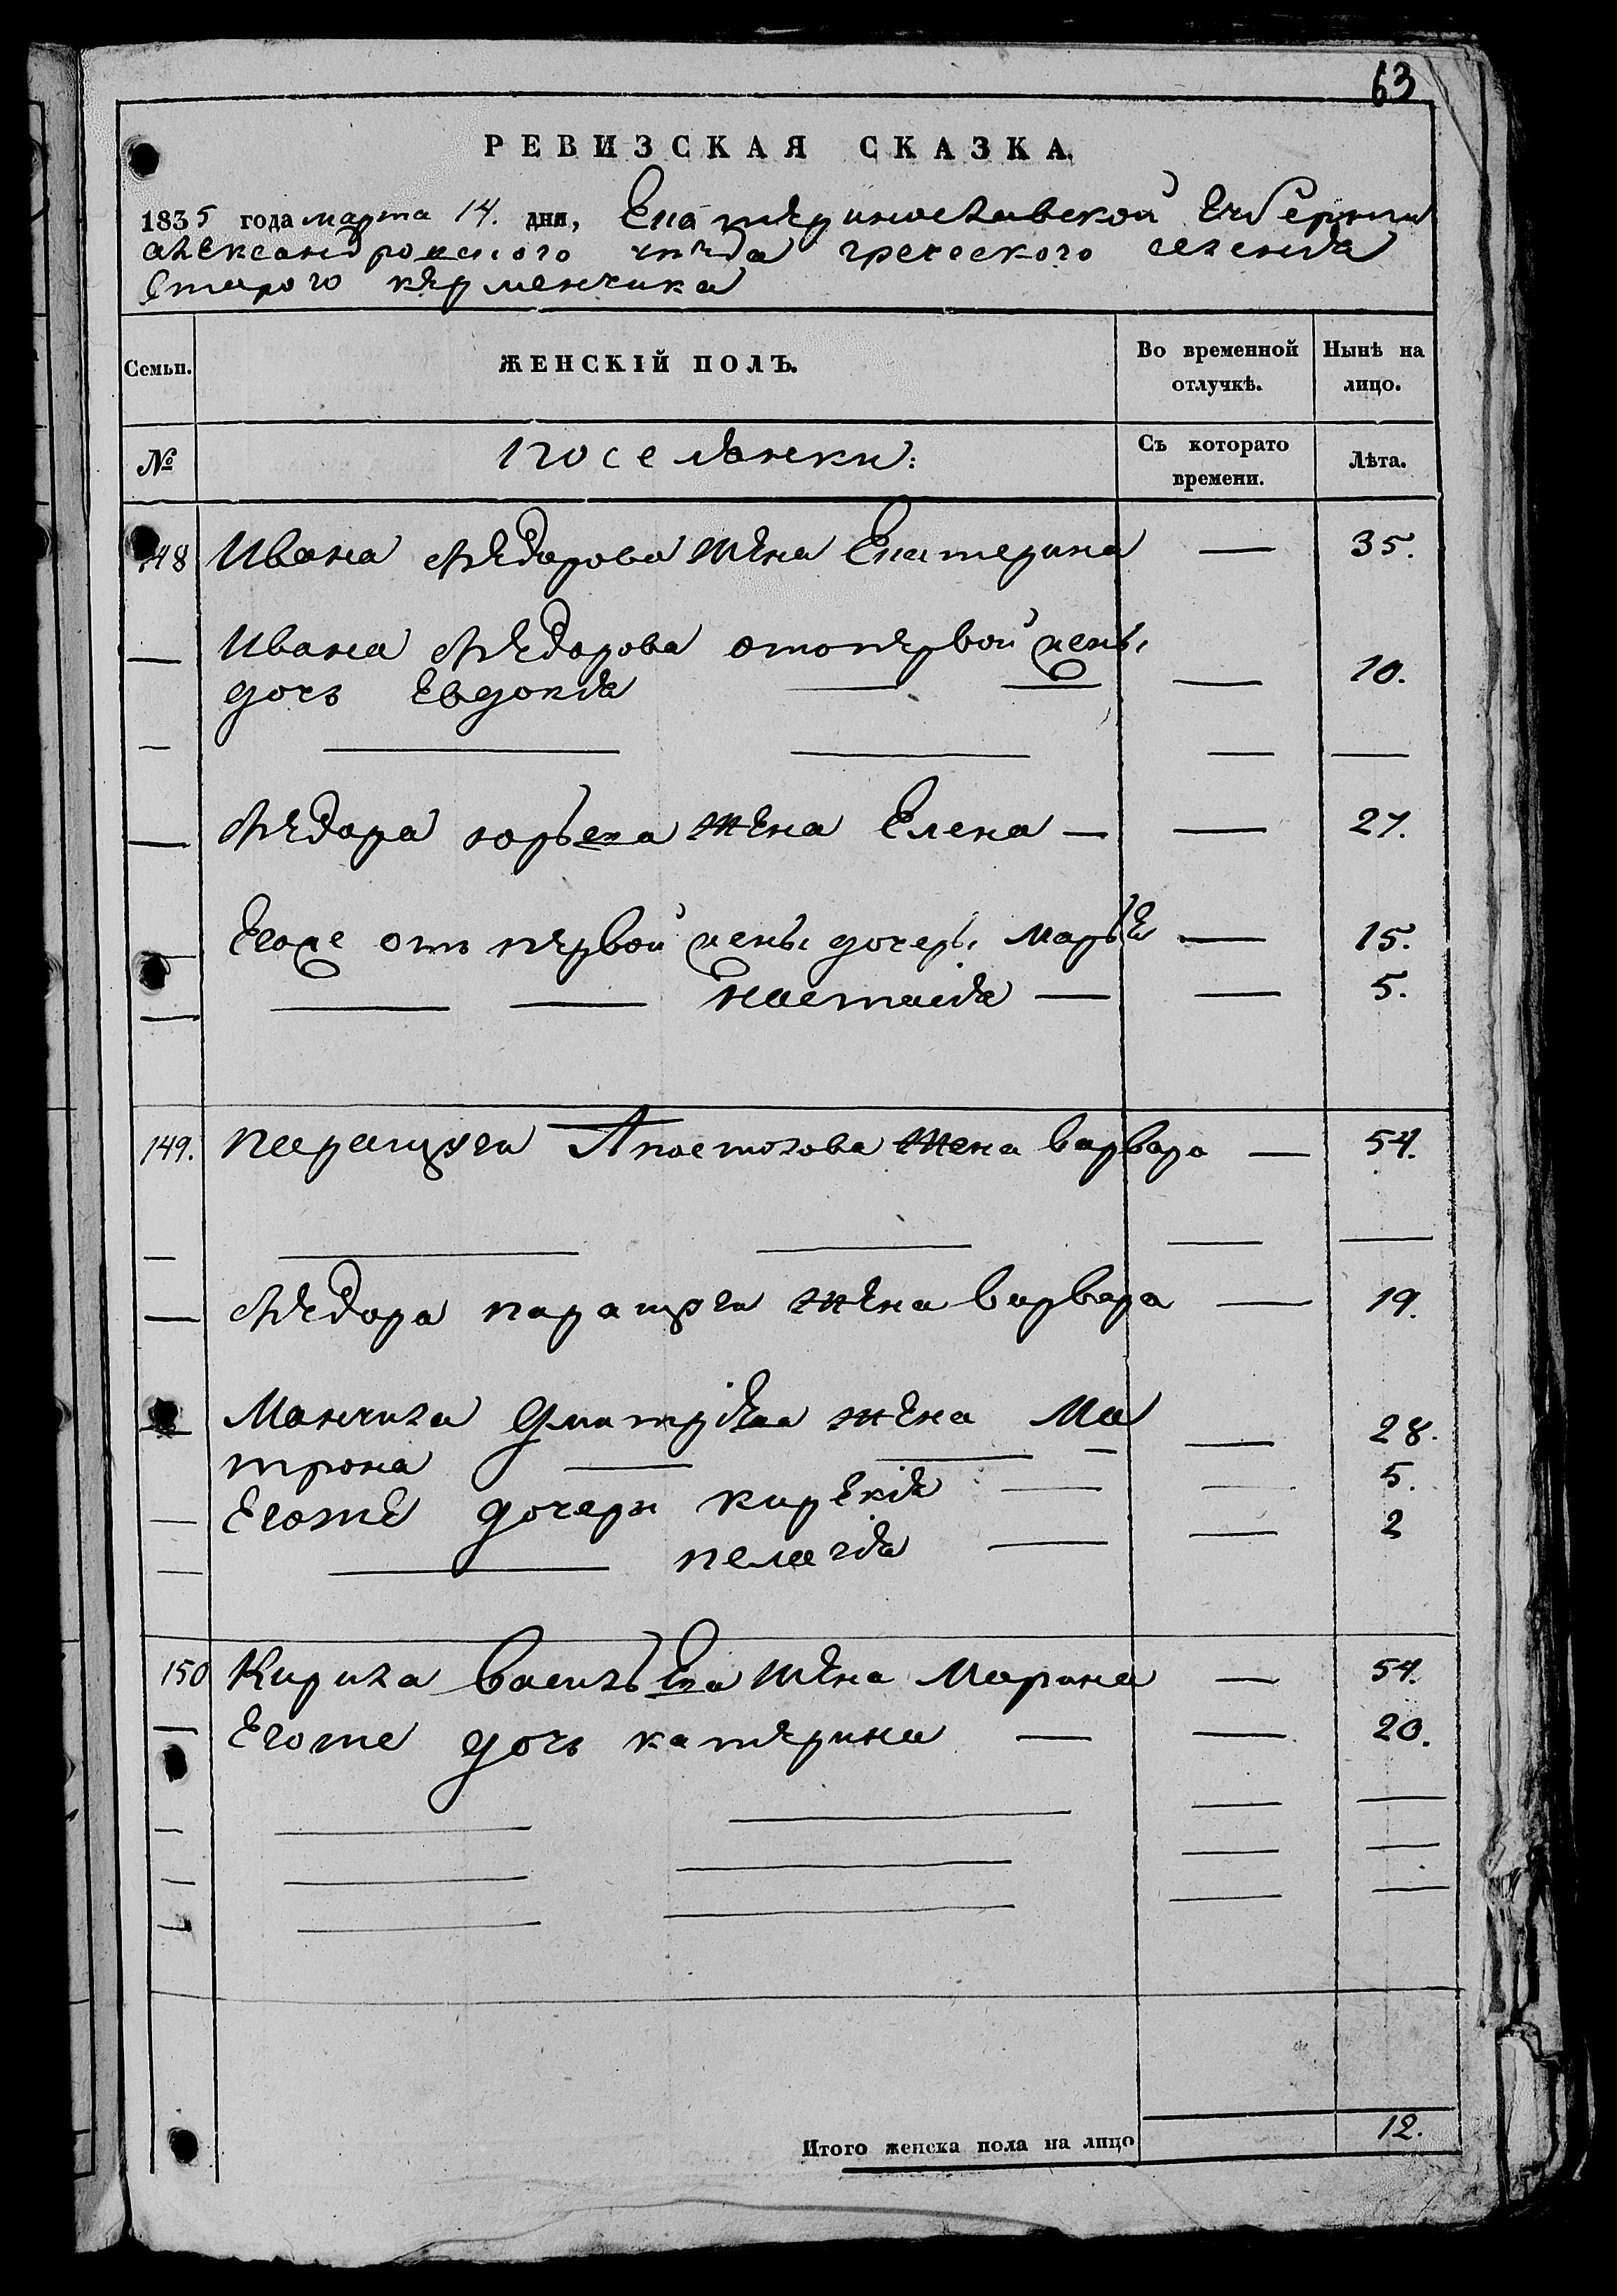 63
РЕВИЗСКАЯ СКАЗКА.
1835 года марта 14. дня, Екатериносл​авской Губернии
александровского уезда греческого селения
Старого керменчика
Семьи. ЖЕНСКІЙ ПОЛЪ. Во временной отлучкѣ. Нынѣ на лицо.
№ поселянки: Съ которато времени. Лѣта.
148 Ивана Федорова жена Екатерина — 35.
— Ивана Федорова отопервой жены
дочь Евдокія — — — 10.
— — — — —
— Федора юрьева жена Елена — — 27.
— Егоже отъ первой жены дочери Марье — 15.
— — — настасія — — 5.
149. паращеи Апостолова жена варвара — 54.
— — — — —
— Федора паращеи жена варвара — 19.
— Манчила дмитріева жена Ма
трона — — — — 28.
— Егоже дочери кирекія — — 5.
— — пелагія — — 2
150 Кирила васильева жена Марина — 54.
— Егоже дочь катерина — — 20.
— — — — —
— — — — —
— — — — —
Итого женска пола на лицо 12.